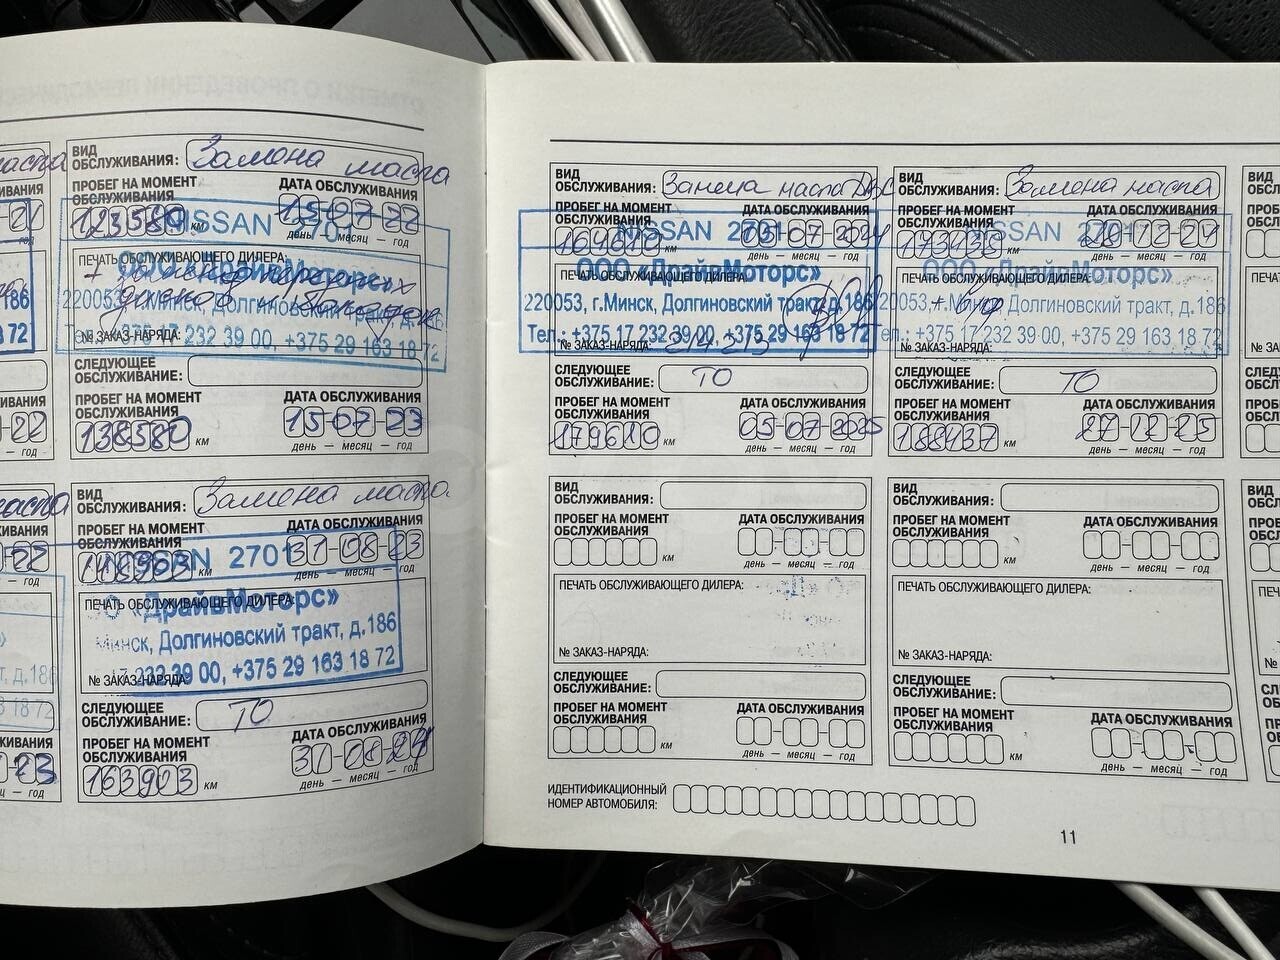 ВИД
ОБСЛУЖИВАНИЯ: Замена масла
ПРОБЕГ НА МОМЕНТ
ОБСЛУЖИВАНИЯ
123580 км
ДАТА ОБСЛУЖИВАНИЯ
15-07-22
день — месяц — год
NISSAN 2701
ПЕЧАТЬ ОБСЛУЖИВАЮЩЕГО ДИЛЕРА:
ООО «ДрайвМоторс»
220053, г.Минск, Долгиновский тракт, д.186
Тел.: +375 17 232 39 00, +375 29 163 18 72
№ ЗАКАЗ-НАРЯДА:
СЛЕДУЮЩЕЕ
ОБСЛУЖИВАНИЕ:
ПРОБЕГ НА МОМЕНТ
ОБСЛУЖИВАНИЯ
138580 км
ДАТА ОБСЛУЖИВАНИЯ
15-07-23
день — месяц — год
ВИД
ОБСЛУЖИВАНИЯ: Замена масла
ПРОБЕГ НА МОМЕНТ
ОБСЛУЖИВАНИЯ
148903 км
ДАТА ОБСЛУЖИВАНИЯ
31-08-23
день — месяц — год
NISSAN 2701
ПЕЧАТЬ ОБСЛУЖИВАЮЩЕГО ДИЛЕРА:
«ДрайвМоторс»
Минск, Долгиновский тракт, д.186
17 232 39 00, +375 29 163 18 72
№ ЗАКАЗ-НАРЯДА:
СЛЕДУЮЩЕЕ
ОБСЛУЖИВАНИЕ: ТО
ПРОБЕГ НА МОМЕНТ
ОБСЛУЖИВАНИЯ
163903 км
ДАТА ОБСЛУЖИВАНИЯ
31-08-24
день — месяц — год
ВИД
ОБСЛУЖИВАНИЯ: Замена масла ДВС
ПРОБЕГ НА МОМЕНТ
ОБСЛУЖИВАНИЯ
164610 км
ДАТА ОБСЛУЖИВАНИЯ
05-07-2024
NISSAN 2701
ПЕЧАТЬ ОБСЛУЖИВАЮЩЕГО ДИЛЕРА:
ООО «ДрайвМоторс»
220053, г.Минск, Долгиновский тракт, д.186
Тел.: +375 17 232 39 00, +375 29 163 18 72
№ ЗАКАЗ-НАРЯДА:
СЛЕДУЮЩЕЕ
ОБСЛУЖИВАНИЕ: ТО
ПРОБЕГ НА МОМЕНТ
ОБСЛУЖИВАНИЯ
179610 км
ДАТА ОБСЛУЖИВАНИЯ
05-07-2025
день — месяц — год
ВИД
ОБСЛУЖИВАНИЯ: Замена масла
ПРОБЕГ НА МОМЕНТ
ОБСЛУЖИВАНИЯ
173438 км
ДАТА ОБСЛУЖИВАНИЯ
28-12-24
день — месяц — год
NISSAN 2701
ПЕЧАТЬ ОБСЛУЖИВАЮЩЕГО ДИЛЕРА:
ООО «ДрайвМоторс»
220053, г.Минск, Долгиновский тракт, д.186
Тел.: +375 17 232 39 00, +375 29 163 18 72
№ ЗАКАЗ-НАРЯДА:
СЛЕДУЮЩЕЕ
ОБСЛУЖИВАНИЕ: ТО
ПРОБЕГ НА МОМЕНТ
ОБСЛУЖИВАНИЯ
188437 км
ДАТА ОБСЛУЖИВАНИЯ
27-12-25
день — месяц — год
ВИД
ОБСЛУЖИВАНИЯ:
ПРОБЕГ НА МОМЕНТ
ОБСЛУЖИВАНИЯ
км
ДАТА ОБСЛУЖИВАНИЯ
день — месяц — год
ПЕЧАТЬ ОБСЛУЖИВАЮЩЕГО ДИЛЕРА:
№ ЗАКАЗ-НАРЯДА:
СЛЕДУЮЩЕЕ
ОБСЛУЖИВАНИЕ:
ПРОБЕГ НА МОМЕНТ
ОБСЛУЖИВАНИЯ
км
ДАТА ОБСЛУЖИВАНИЯ
день — месяц — год
ВИД
ОБСЛУЖИВАНИЯ:
ПРОБЕГ НА МОМЕНТ
ОБСЛУЖИВАНИЯ
км
ДАТА ОБСЛУЖИВАНИЯ
день — месяц — год
ПЕЧАТЬ ОБСЛУЖИВАЮЩЕГО ДИЛЕРА:
№ ЗАКАЗ-НАРЯДА:
СЛЕДУЮЩЕЕ
ОБСЛУЖИВАНИЕ:
ПРОБЕГ НА МОМЕНТ
ОБСЛУЖИВАНИЯ
км
ДАТА ОБСЛУЖИВАНИЯ
день — месяц — год
ИДЕНТИФИКАЦИОННЫЙ
НОМЕР АВТОМОБИЛЯ:
11